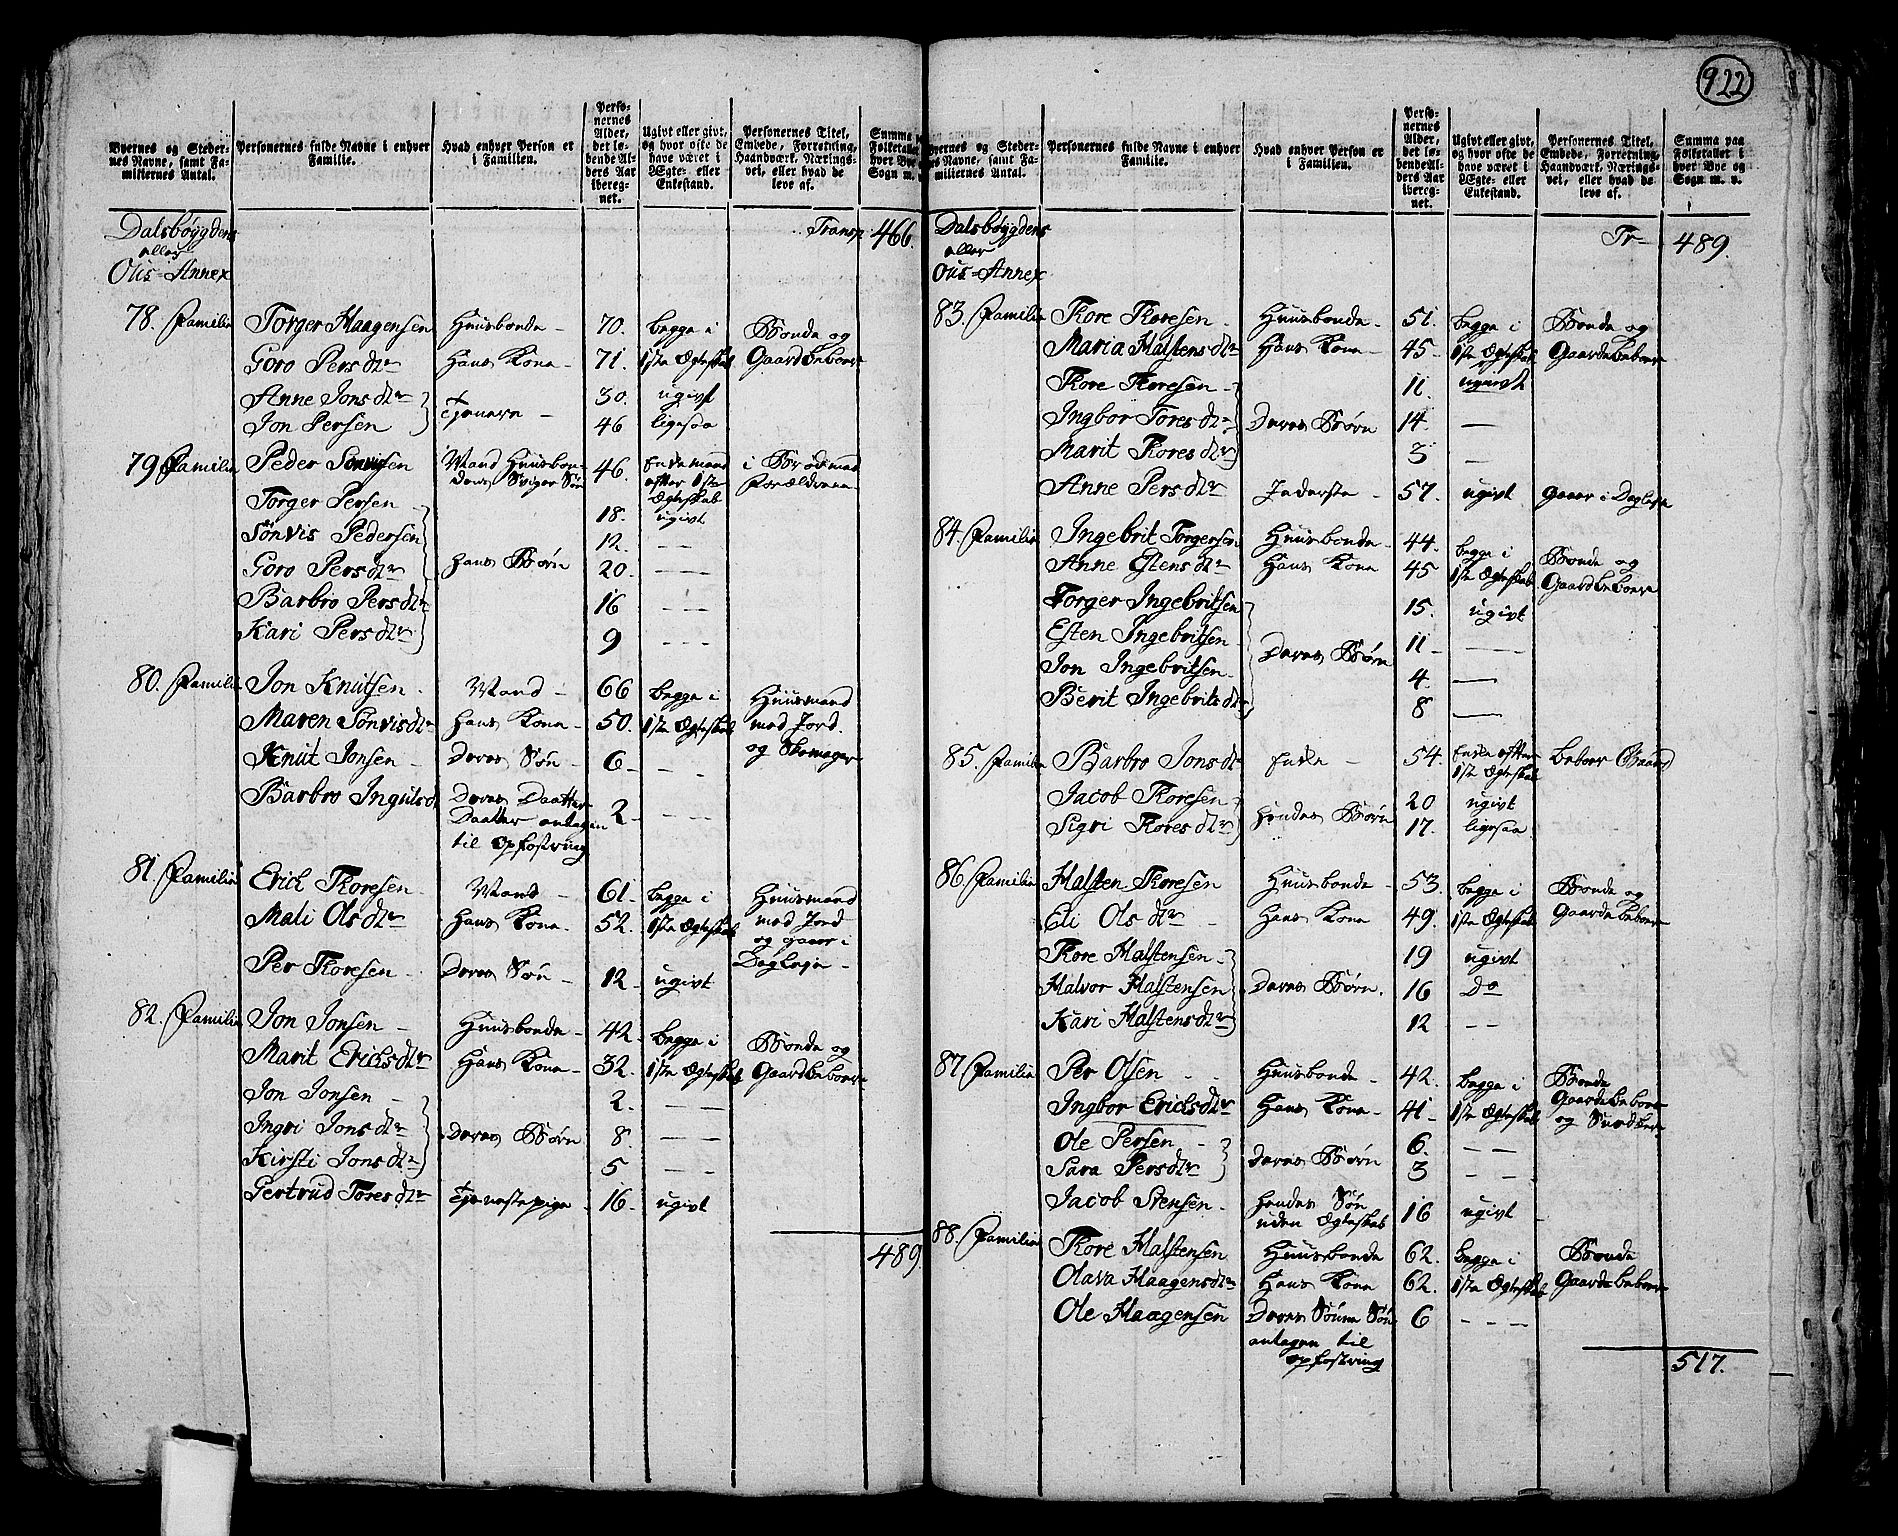 922
Byernes og Stedernes Navne, samt Familiernes Antal.
Personernes fulde Navne i enhver Familie.
Hvad enhver Person er i Familien.
Personernes Alder, det løbende Alders Aar iberegnet.
Ugivt eller givt, og hvor ofte de have været i Ægte- eller Enkestand.
Personernes Titel, Embede, Forretning, Haandværk, Næringsvei, eller hvad de leve af.
Summa Folketallet hver Bye Sogn m.
Dalsbøygdens Transp 466.
eller
Ous=Annex
78. Familie Torger Haagensen Huusbonde - 70. begge i Bonde og
Goro Persdtr Hans Kone - 71. 1ste Ægteskab Gaardbeboer
Anne Jonsdtr 30. ugivt
Jon Persen Tjenere - 46 ligesaa
79 Familie Peder Sønvisen Mand Huusbondens Sviger Søn 46. Enkemand efter 1ste Ægteskab i Brød med Forældrene
Torger Persen 18. ugivt
Sønvis Pedersen 12. - -
Goro Persdtr Hans Børn 20. - -
Barbro Persdtr 16 - -
Kari Persdtr 9 - -
80. Familie Jon Knutsen - Mand - 66 begge i Huusmand
Maren Sønvisdtr Hans Kone - 50. 1ste Ægteskab med Jord.
Knut Jonsen - Deres Søn - 6 - - - og Skomager
Barbro Ingulsd Deres Daatter 2 - - -
Daatter antagen
til opfostring
81. Familie Erich Thoresen - Mand - 61. begge i Huusmand
Mali Olsdtr Hans Kone - 52. 1ste Ægteskab med Jord
og gaaer i
Per Thoresen - Deres Søn - 12 - ugivt Dagleje -
82. Familie Jon Jonsen - Huusbonde - 42. begge i Bonde og
Marit Erichsdtr Hans Kone - 32. 1ste Ægteskab Gaardbeboer
Jon Jonsen - 2. - -
Ingri Jonsdtr Deres Børn 8. - -
Kirsti Jonsdtr 5 - -
Gertrud Toresdtr Tjenestepige - 16 - ugivt
489
Byernes og Stedernes Navne, samt Familiernes Antal.
Personernes fulde Navne i enhver Familie.
Hvad enhver Person er i Familien.
Personernes Alder, det løbende Alders Aar iberegnet.
Ugivt eller givt, og hvor ofte de have været i Ægte- eller Enkestand.
Personernes Titel, Embede, Forretning, Haandværk, Næringsvei, eller hvad de leve af.
Summa paa Folketallet i hver Bye og Sogn m. v.
Dalsbøygdens Tr- 489.
eller
Ous=Annex
83. Familie Thore Thoresen - Huusbonde - 51. begge i Bonde og
Maria Halstensdtr Hans Kone - 45 - 1ste Ægteskab Gaardebeboer
Thore Thoresen - 11. ugivt
Ingbor Toresdtr Deres Børn 14. -
Marit Thoresdtr 3 -
Anne Persdtr Inderste - 57. ugivt gaaer i Dagleje
84. Familie Ingebrit Torgersen Huusbonde - 44. begge i Bonde og
Anne Estensdtr Hans Kone 45 1ste Ægteskab Gaardbeboer
Torger Ingebritsen 15. ugivt
Esten Ingebritsen - Deres Børn 11 - -
Jon Ingebritsen - 4. -
Berit Ingebritsdtr 8 -
85. Familie Barbro Jonsdtr Enke - 54. Enke efter 1ste Ægteskab beboer Gaard
Jacob Thoresen - 20 ugivt
Sigri Thoresdtr Hendes Børn 17. ligesaa
86. Familie Halsten Thoresen Huusbonde - 53. begge i Bonde og
Eli Olsdtr - Hans Kone 49. 1ste Ægteskab Gaardebeboer
Thore Halstensen - 19 ugivt
Halvor Halstensen Deres Børn. 16 Do
Kari Halstensdtr 12 - -
87. Familie Per Olsen - - Huusbonde - 42. begge i Bonde
Ingbor Erichsdtr Hans Kone - 41 - 1ste Ægteskab Gaardebeboer
Ole Persen - 6. - - og
Sara Persdtr Deres Børn 3 - -
Jacob Stensen - Hendes Søn uden Ægteskab 16 ugivt -
88. Familie Thore Halstensen Huusbonde 62. begge i Bonde
Olava Haagensdtr Hans Kone 62. 1ste Ægteskab Gaardebeboer
Ole Haagensen Deres Sønne Søn 6 - - -
antagen til
opfostring
517.